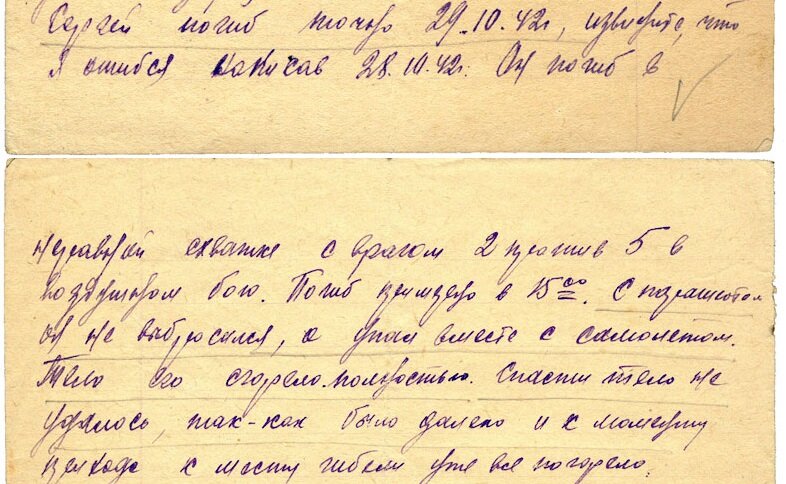 Сергей погиб точно 29.10.42г, извините, что
я ошибся написав 28.10.42г. Он погиб в
неравной схватке с врагом 2 против 5 в
воздушном бою. Погиб примерно в 15⁰⁰. С парашютом
он не выбросился, а упал вместе с самолетом.
Тело его сгорело полностью. Спасти тело не
удалось, так-как было далеко и к моменту
прихода к месту гибели уже все погорело.